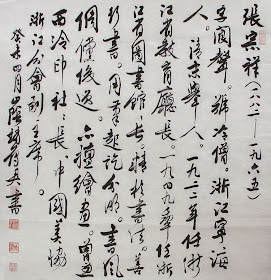 張宗祥(一八八二—一九六五)
字閬聲。號冷僧。浙江寧海
人。清末舉人。一九二二年任浙
江省教育廳長。一九四九年任浙
江省圖書館長。精於書法。善
行書。用筆起訖分明。書風
倜儻俊逸。亦擅繪畫。曾任
西泠印社社長、中國美協
浙江分會副主席。
癸未四月山陰書